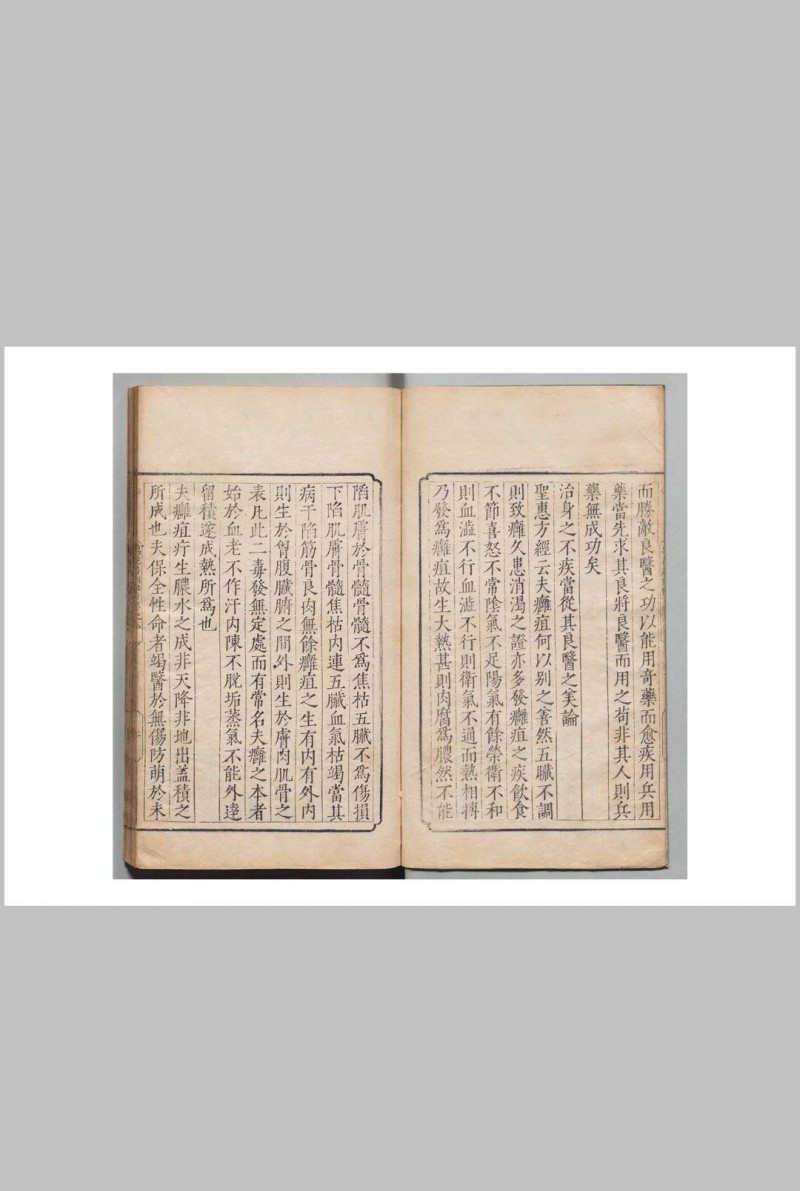 而勝敵良醫之功以能用奇藥而愈疾用兵用
藥當先求其良將良醫而用之茍非其人則兵
藥無成功矣
治身之不疾當從其良醫之笑論
聖惠方經云夫癰疽何以别之害然五臓不調
則致癰久患消渴之證亦多發癰疽之疾飲食
不節喜怒不常陰氣不足陽氣有餘榮衛不和
則血澁不行血澁不行則衛氣不通而熱相搏
乃發爲癰疽故生大熱甚則肉腐爲膿然不能
陷肌膚於骨髓骨髓不爲焦枯五臓不爲傷損
下陷肌膚骨髓焦枯内連五臓血氣枯竭當其
病干陷筋骨良肉無餘癰疽之生有内有外内
則生於胷腹臓腑之間外則生於膚肉肌骨之
表凡此二毒發無定處而有常名夫癰之本者
始於血老不作汗内陳不脱垢蒸氣不能外達
留積遂成熱所爲也
夫癰疽疔生膿水之成非天降非地出蓋積之
所成也夫保全性命者竭醫於無傷防萌於未